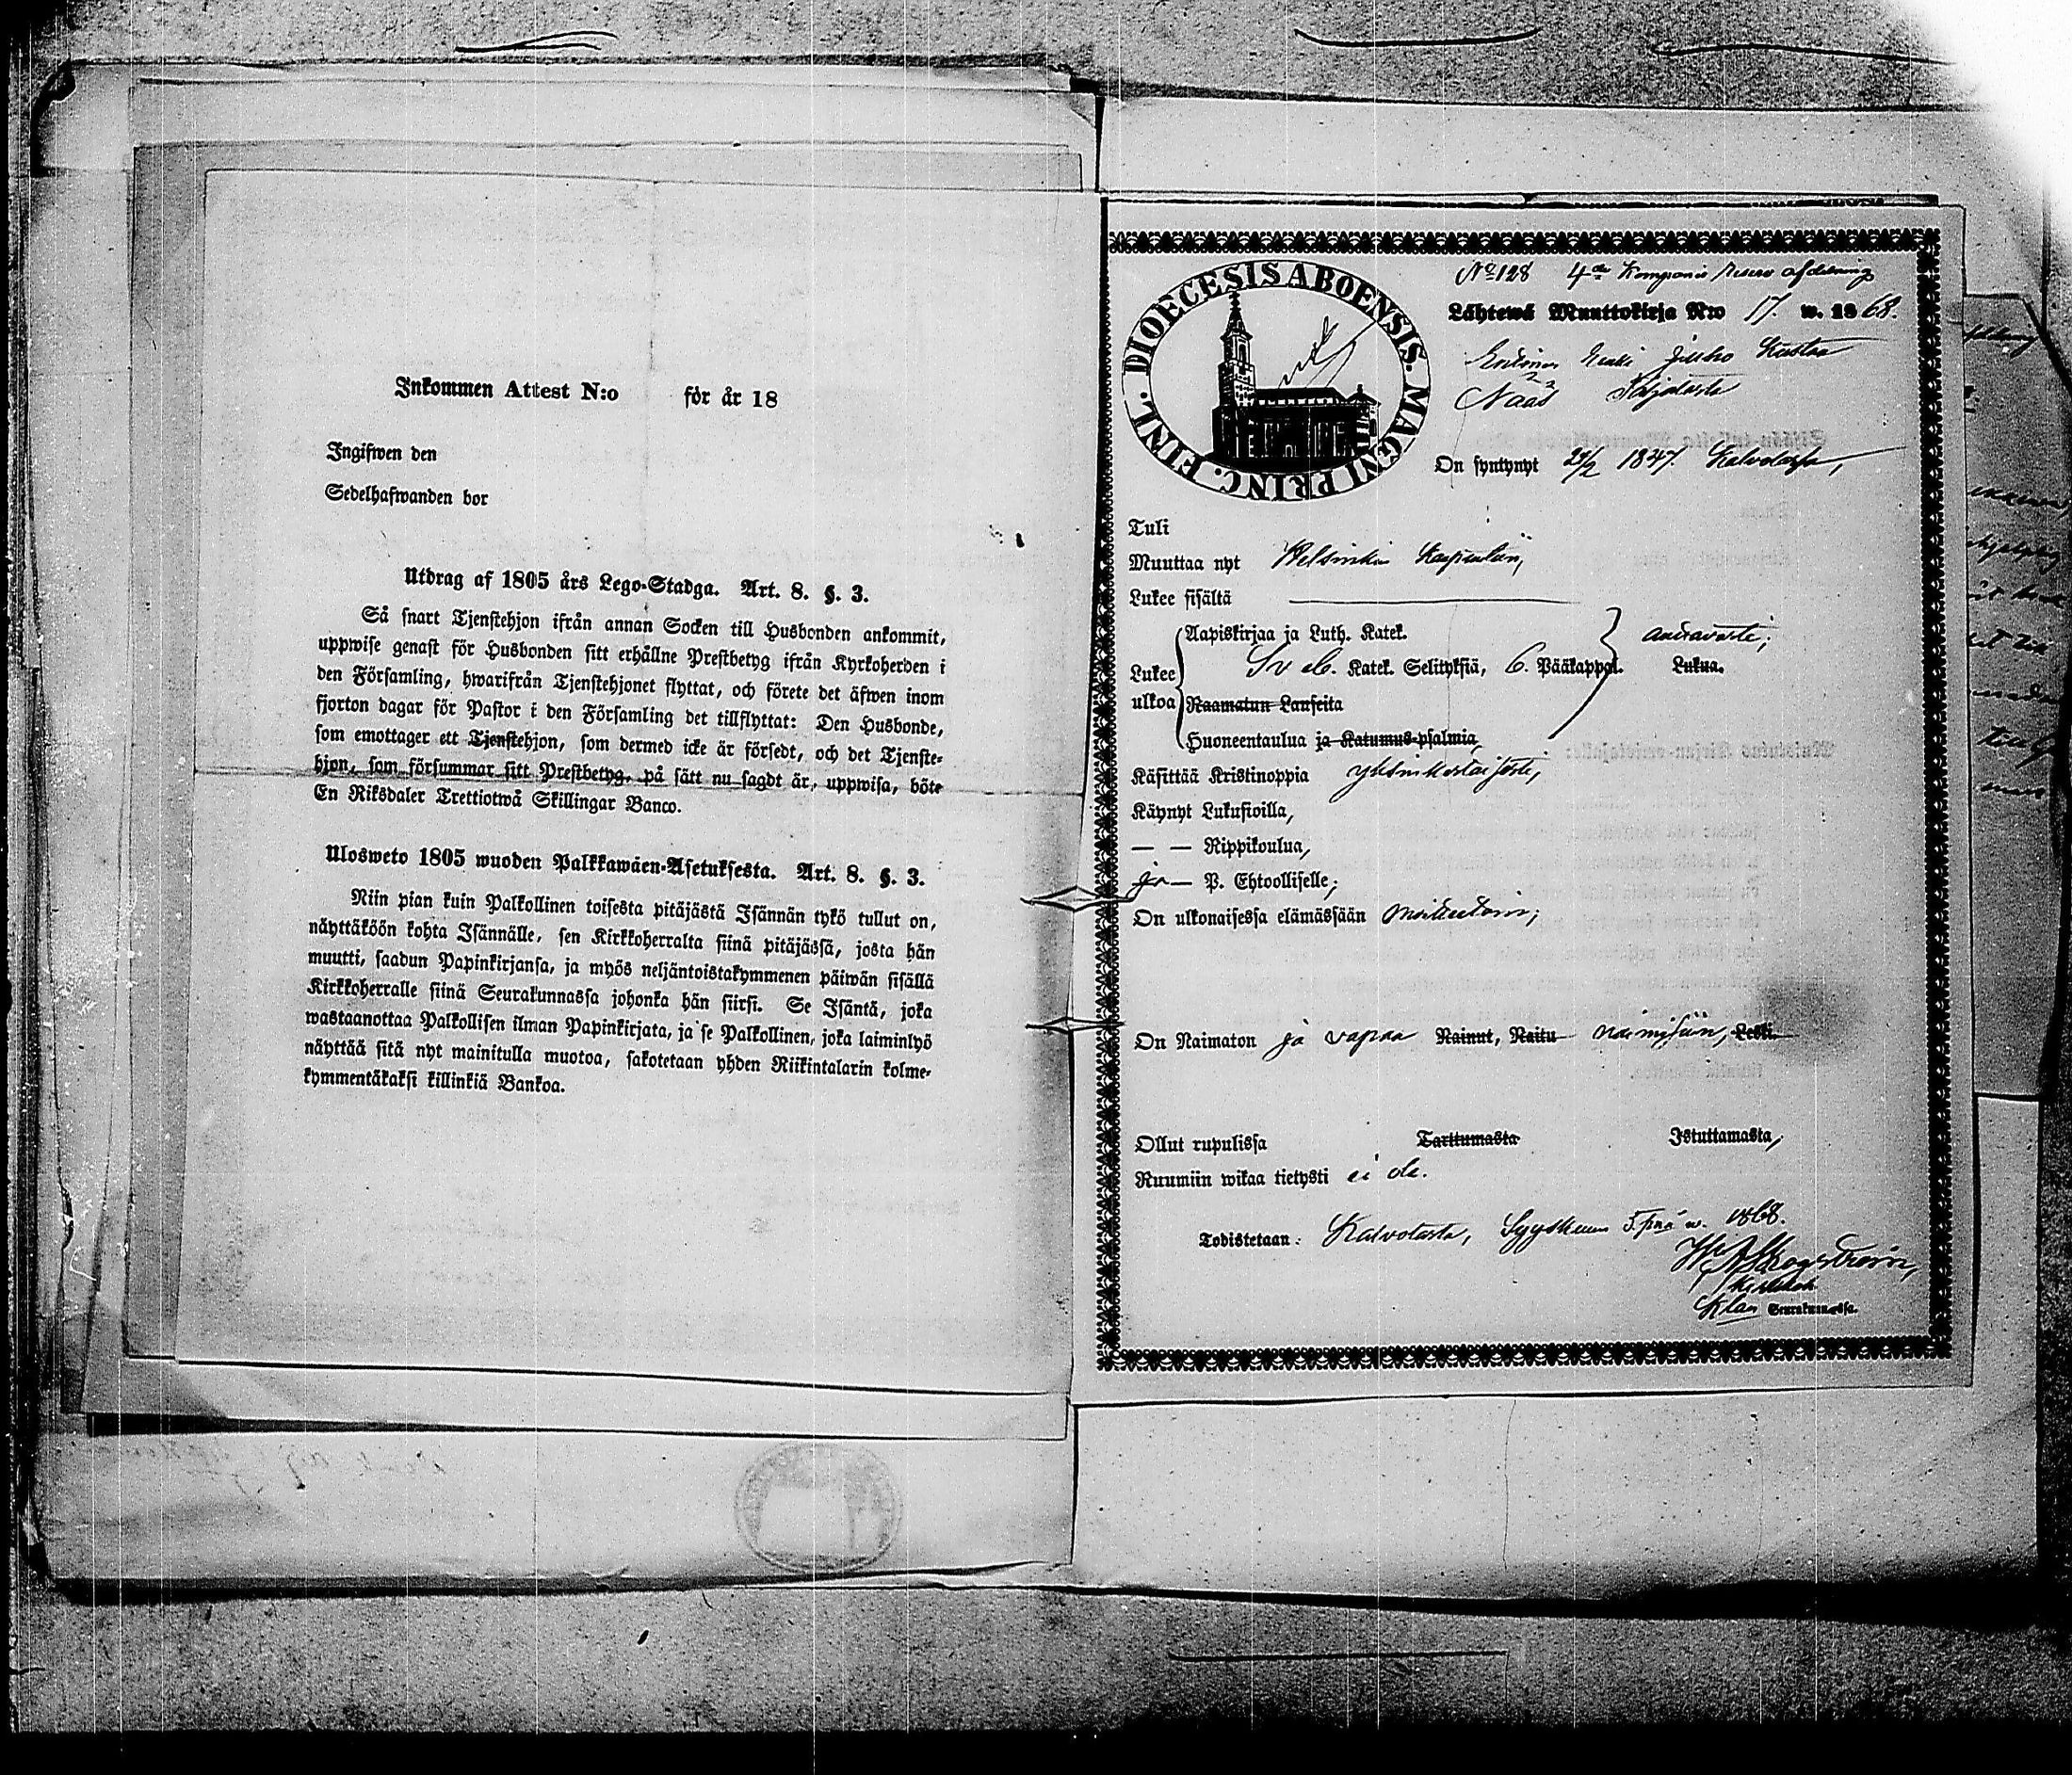 Inkommen Attest N:o för år 18
Ingifwen den
Sedelhafwanden bor
Utdrag af 1805 års Lego-Stadga. Art. 8. §. 3.
Så snart Tjenstehjon ifrån annan Socken till Husbonden ankommit,
uppwise genast för Husbonden sitt erhållne Prestbetyg ifrån Kyrkoherden i
den Församling, hwarifrån Tjenstehjonet flyttat, och förete det äfwen inom
fjorton dagar för Pastor i den Församling det tillflyttat: Den Husbonde,
som emottager ett Tjenstehjon, som dermed icke är försedt, och det Tjenste-
hjon, som försummar sitt Prestbetyg, på sätt nu sagdt är, uppwisa, böte
En Riksdaler Trettiotwå Skillingar Banco.
Ulosweto 1805 wuoden Palkkawäen-Asetuksesta. Art. 8. §. 3.
Niin pian kuin Palkollinen toisesta pitäjästä Isännän tykö tullut on,
näyttäköön kohta Isännälle, sen Kirkkoherralta siinä pitäjässä, josta hän
muutti, saadun Papinkirjansa, ja myös neljäntoistakymmenen päiwän sisällä
Kirkkoherralle siinä Seurakunnassa johonka hän siirsi. Se Isäntä, joka
wastaanottaa Palkollisen ilman Papinkirjata, ja se Palkollinen, joka laiminlyö
näyttää sitä nyt mainitulla muotoa, sakotetaan yhden Riikintalarin kolme-
kymmentäkaksi killinkiä Bankoa.
DIOECESIS ABOENSIS. MAGNI PRINC. FINL.
No 128 4de Kompanie Reserv afdelning
Lähtewä Muuttokirja N:o 17. w. 1868.
Juho Kustaa
On syntynyt 1847. Kalvolassa,
Tuli
Muuttaa nyt Helsinkin Kaupunkiin,
Lukee sisältä
Aapiskirjaa ja Luth. Katek.
Lukee
Katek. Selityksiä, 6. Pääkappal. Lukua.
ulkoa
Raamatun Lauseita
Huoneentaulua ja Katumus-psalmia,
Käsittää Kristinoppia yksinkertaisesti,
Käynyt Lukusioilla,
— — Rippikoulua,
ja — P. Ehtoollisella;
On ulkonaisessa elämässään
On Naimaton ja vapaa Nainut, Naitu naimisiin, Leski.
Ollut rupulissa Tarttumasta Istuttamasta,
Ruumiin wikaa tietysti ei ole.
Todistetaan: Kalvolasta, Syyskuun 5. pnä w. 1868.
Klan Seurakunnassa.